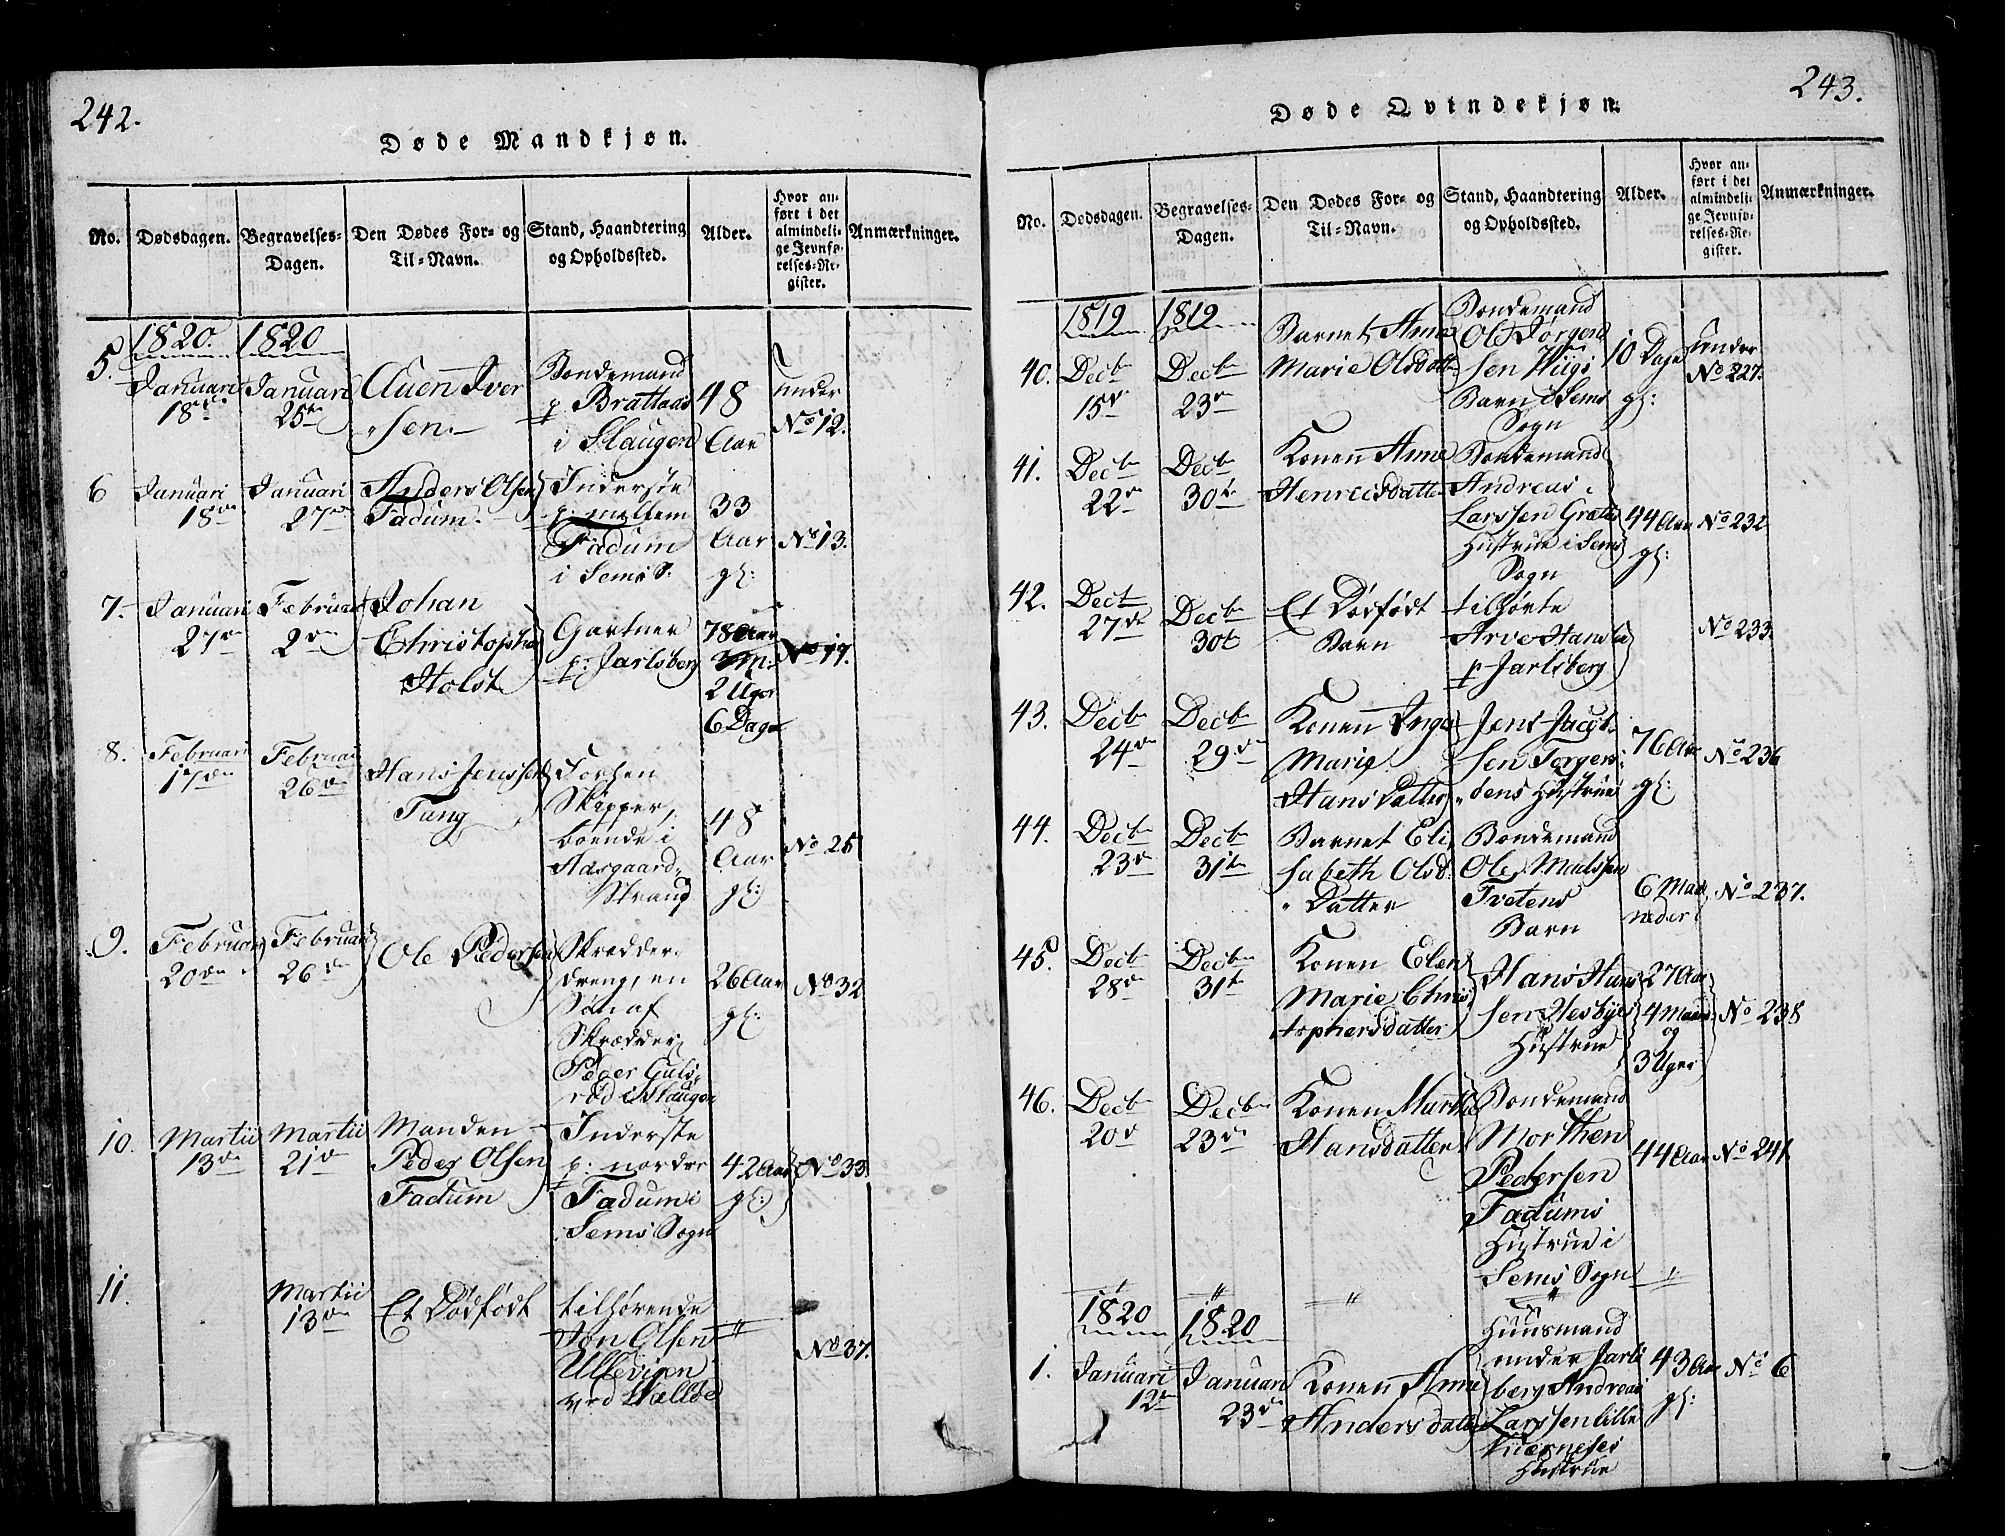 242.
Døde Mandkjøn.
No.
Dødsdagen.
Begravelses-
Dagen.
Den Dødes For- og
Til-Navn.
Stand, Haandtering
og Opholdssted.
Alder.
Hvor an-
ført i det
almindeli-
ge Jevnfø-
relses-Re-
gister.
Anmærkninger.
1820. 1820
5. Januari
18de
Januari
25de
Auen Iver
sen.
Bondemand
p Brattaas
i Slaugen
48
Aar
under
No 12.
6 Januari
18de
Januari
27de
Anders Olsen
Fadum.
Inderste
p: mellem
Fadum
i Sems S.
33
Aar
gl:
No 13.
7. Januari
27de
Februari
2den
Johan
Christopher
Holst
Gartner
p: Jarlsberg
78 Aar
3 m:
2 Uger
6 Dage
No 17.
8. Februari
17de
Februari
26de
Hans Jenssen
Tang
Forhen
Skipper,
boende i
Aasgaard-
Strand
48
Aar
gl:
No 25
9. Februari
20de
Februari
26de
Ole Pedersen
Skrædder-
dreng, en
Søn af
Skrædder
Peder Guls-
rød i Slaugen
26 Aar
gl:
No 32
10. Martii
13de
Martii
21de
Manden
Peder Olsen
Fadum
Inderste
p: nordre
Fadum i
Sems Sogn
42 Aar
gl:
No 33.
11.
Martii
13de
Et Dødfødt
tilhørende
Jon Olsen
Ullevigen
ved Valløe
"
No 37.
243.
Døde Qvindekjøn.
No.
Dødsdagen.
Begravelses-
Dagen.
Den Dødes For- og
Til-Navn.
Stand, Haandtering
og Opholdssted.
Alder.
Hvor an-
ført i det
almindeli-
ge Jevnfø-
relses-Re-
gister.
Anmærkninger.
1819 1819
40. Decbr
15de
Decbr
23de
Barnet Anne
Marie Olsdatt
Bondemand
Ole Jørgen
sen Hiigs
Barn i Sems
Sogn
10 Dage
gl:
under
No 227.
41. Decbr
22de
Decbr
30te
Konen Anne
Henrichsdatter
Bondemand
Andreas
Larssen
Hustrue i Sems
Sogn
44 Aar
gl:
No 232
42. Decbr
27de
Decbr
30te
Et Dødfødt
Barn
tilhørte
Arve Hansen
p Jarlsberg
No 233.
43. Decbr
24de
Decbr
29de
Konen Inger
Marie
Hans Datter
Jens Jacob
sen Jorgen
dens Hustrue
76 Aar
gl:
No 236
44. Decbr
23de
Decbr
31te
Barnet Eli
sabeth Olsd.
Datter
Bondemand
Ole Matssen
Tvetens
Barn
6 Maa
neder
No 237.
45. Decbr
28de
Decbr
31te
Konen Elen
Marie Chris
tophersdatter
Hans Hans
sen Hesbyes
Hustrue
27 Aar
4 Maan
og
3 Uger
No 238
46. Decbr
20de
Decbr
23de
Konen Marthe
Hansdatter
Bondemand
Morthen
Pedersen
Fadums
Hustrue i
Sems Sogn
44 Aar
No 241.
" " " " "
1820 1820
1. Januari
12te
Januari
23de
Konen Anne
Andersdatter
Huusmand
under Jarls
berg Andreas
Larssen lille
Hustrue
43 Aar
gl:
No 6